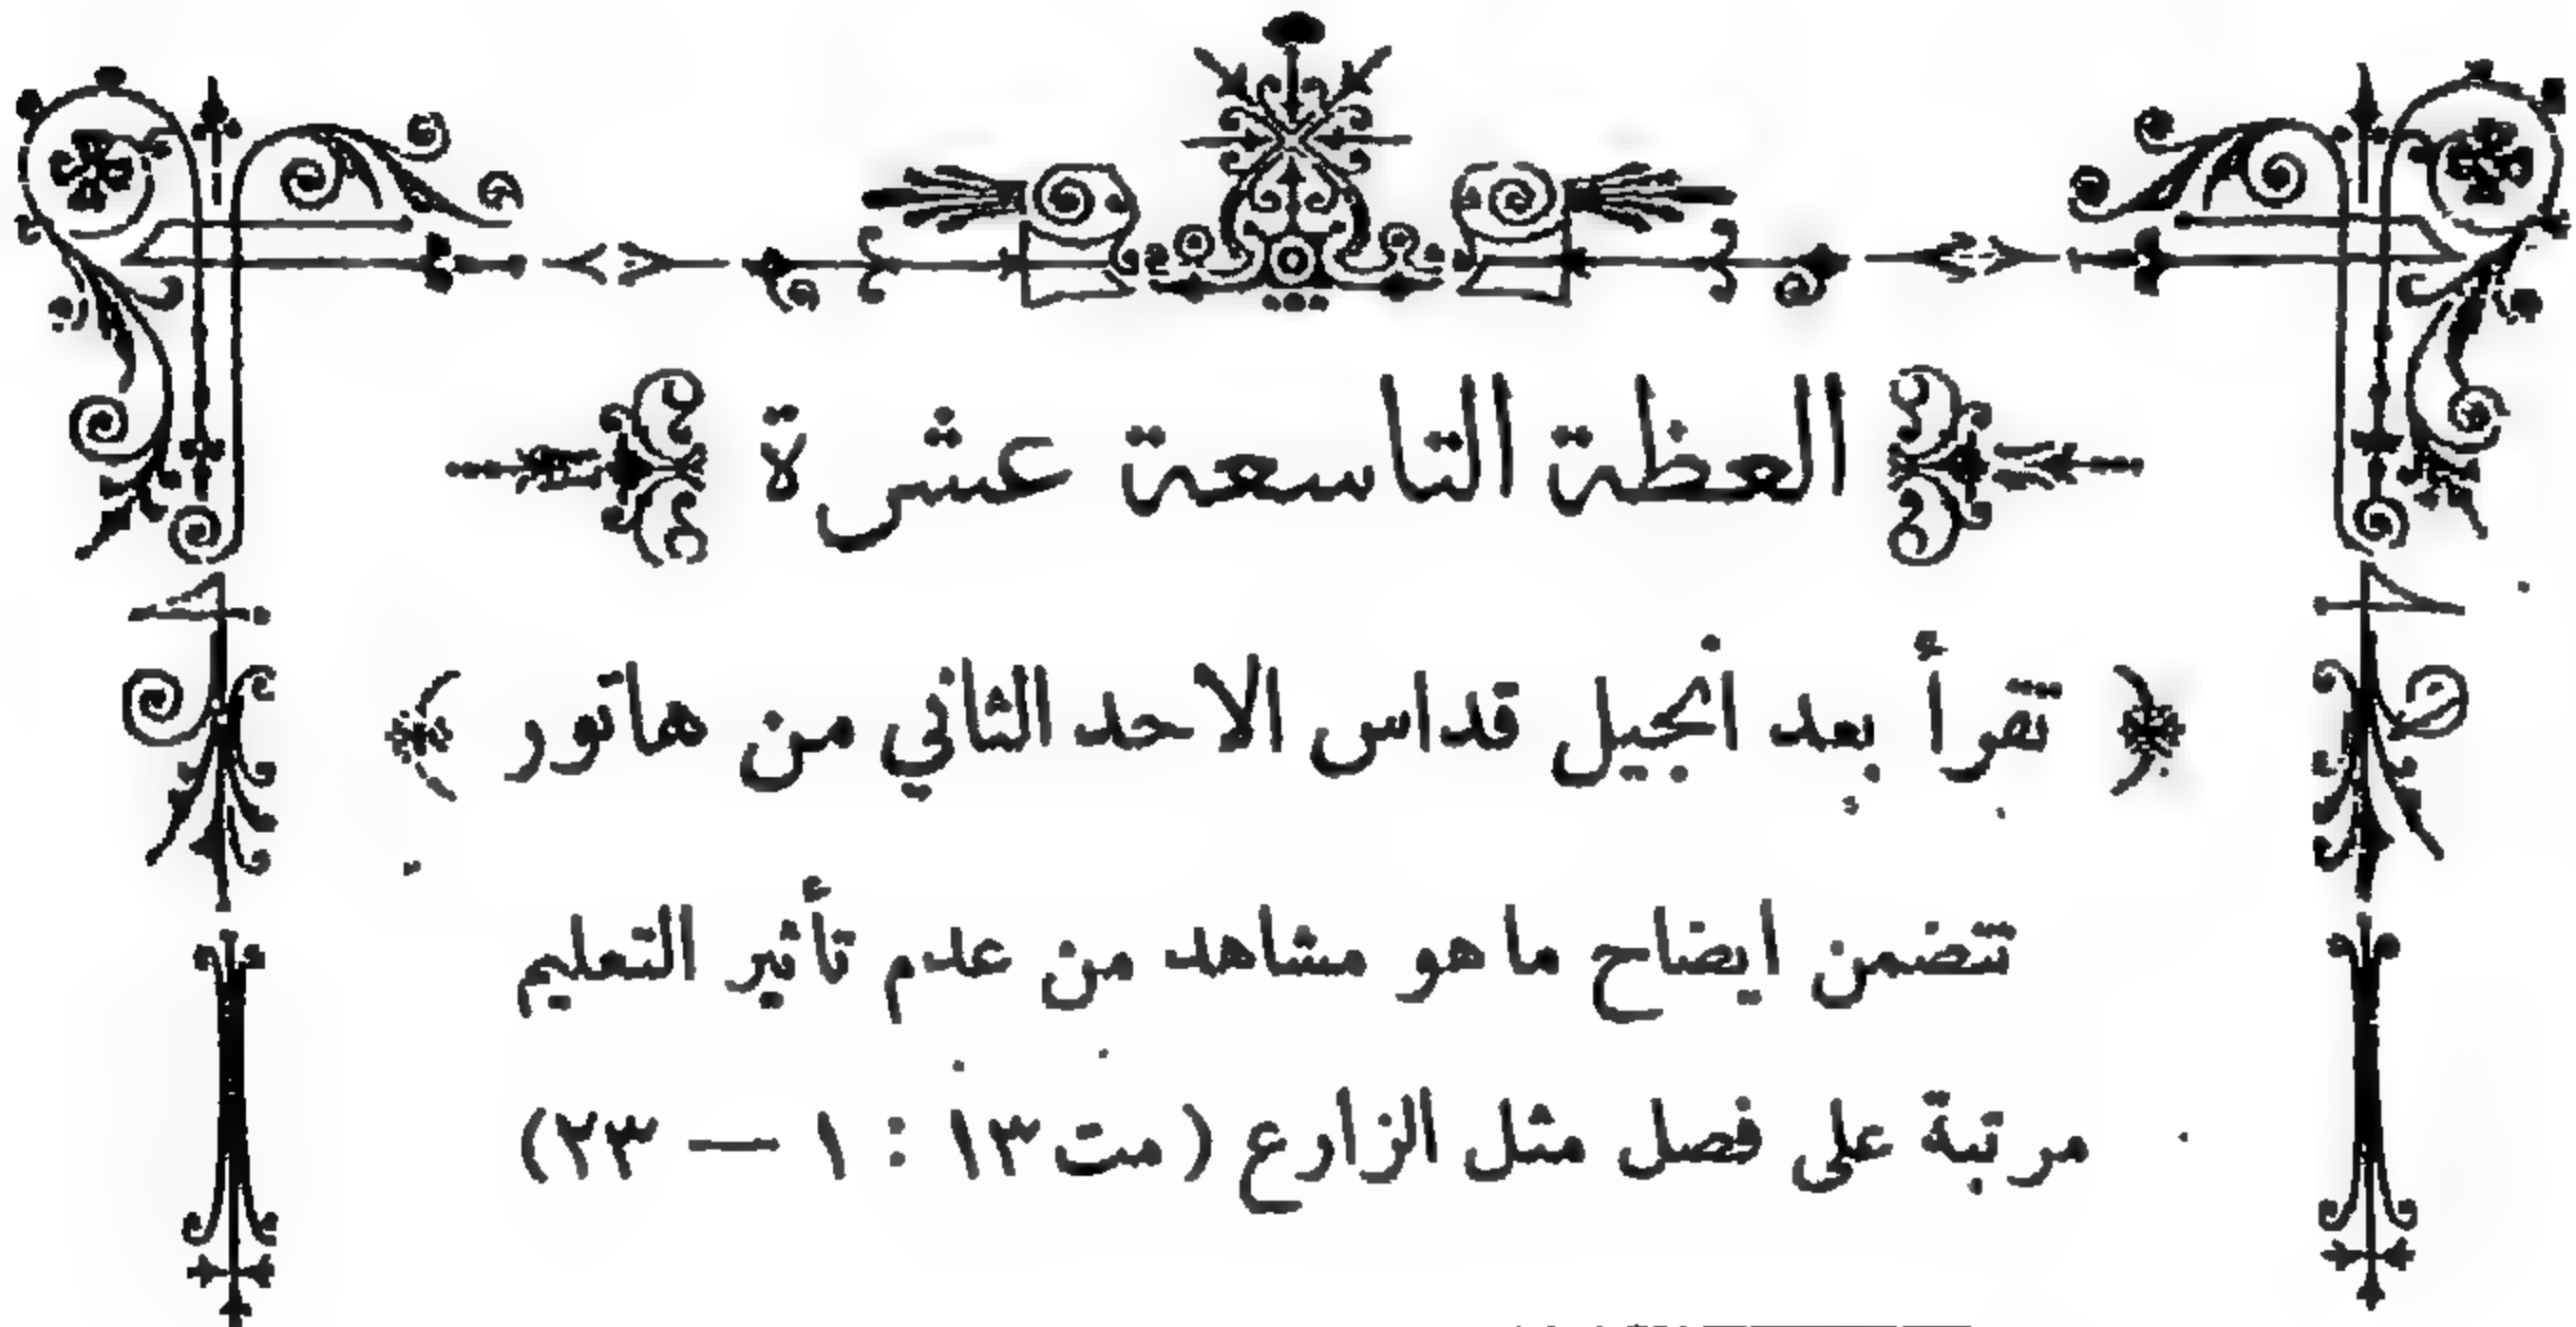 العظة التاسعة عشرة
﴿ تقرأ بعد انجيل قداس الاحد الثاني من هاتور ﴾
تتضمن ايضاح ما هو مشاهد من عدم تأثير التعليم
مرتبة على فصل مثل الزارع (مت ١٣ : ١ — ٢٣)